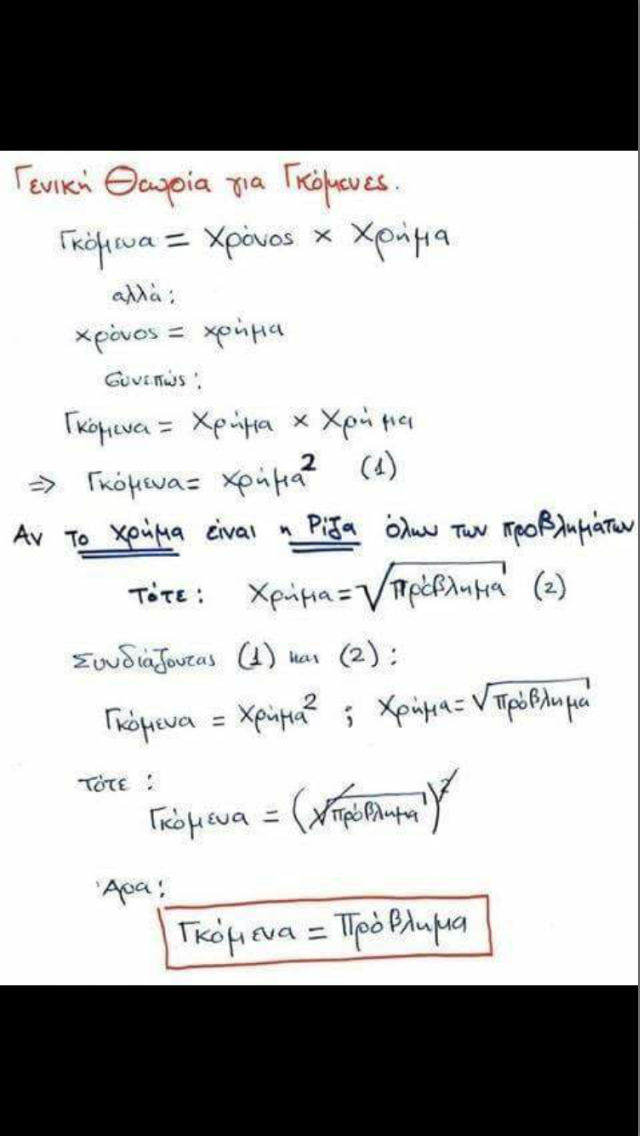 Γενική Θεωρία για Γκόμενες.
Γκόμενα = Χρόνος × Χρήμα
αλλά:
χρόνος = χρήμα
Συνεπώς:
Γκόμενα = Χρήμα × Χρήμα
⇒ Γκόμενα = χρήμα² (1)
Αν το χρήμα είναι η Ρίζα όλων των προβλημάτων
Τότε: Χρήμα = √πρόβλημα (2)
Συνδιάζοντας (1) και (2):
Γκόμενα = Χρήμα² ; Χρήμα = √πρόβλημα
Τότε:
Γκόμενα = (√πρόβλημα)²
Άρα:
Γκόμενα = Πρόβλημα